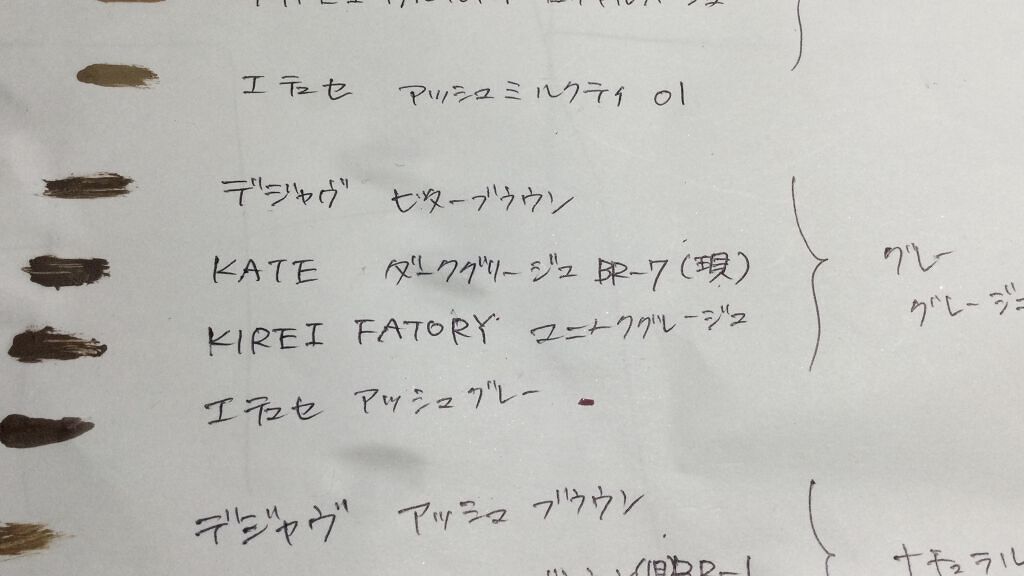 エテュセ アッシュミルクティ 01
デジャヴ ビターブラウン
KATE ダークグリージュ BR-7(現)
KIREI FATORY ユニークグレージュ
グレー
グレージュ
エテュセ アッシュグレー
デジャヴ アッシュ ブラウン
(旧)BR-1
ナチュラル